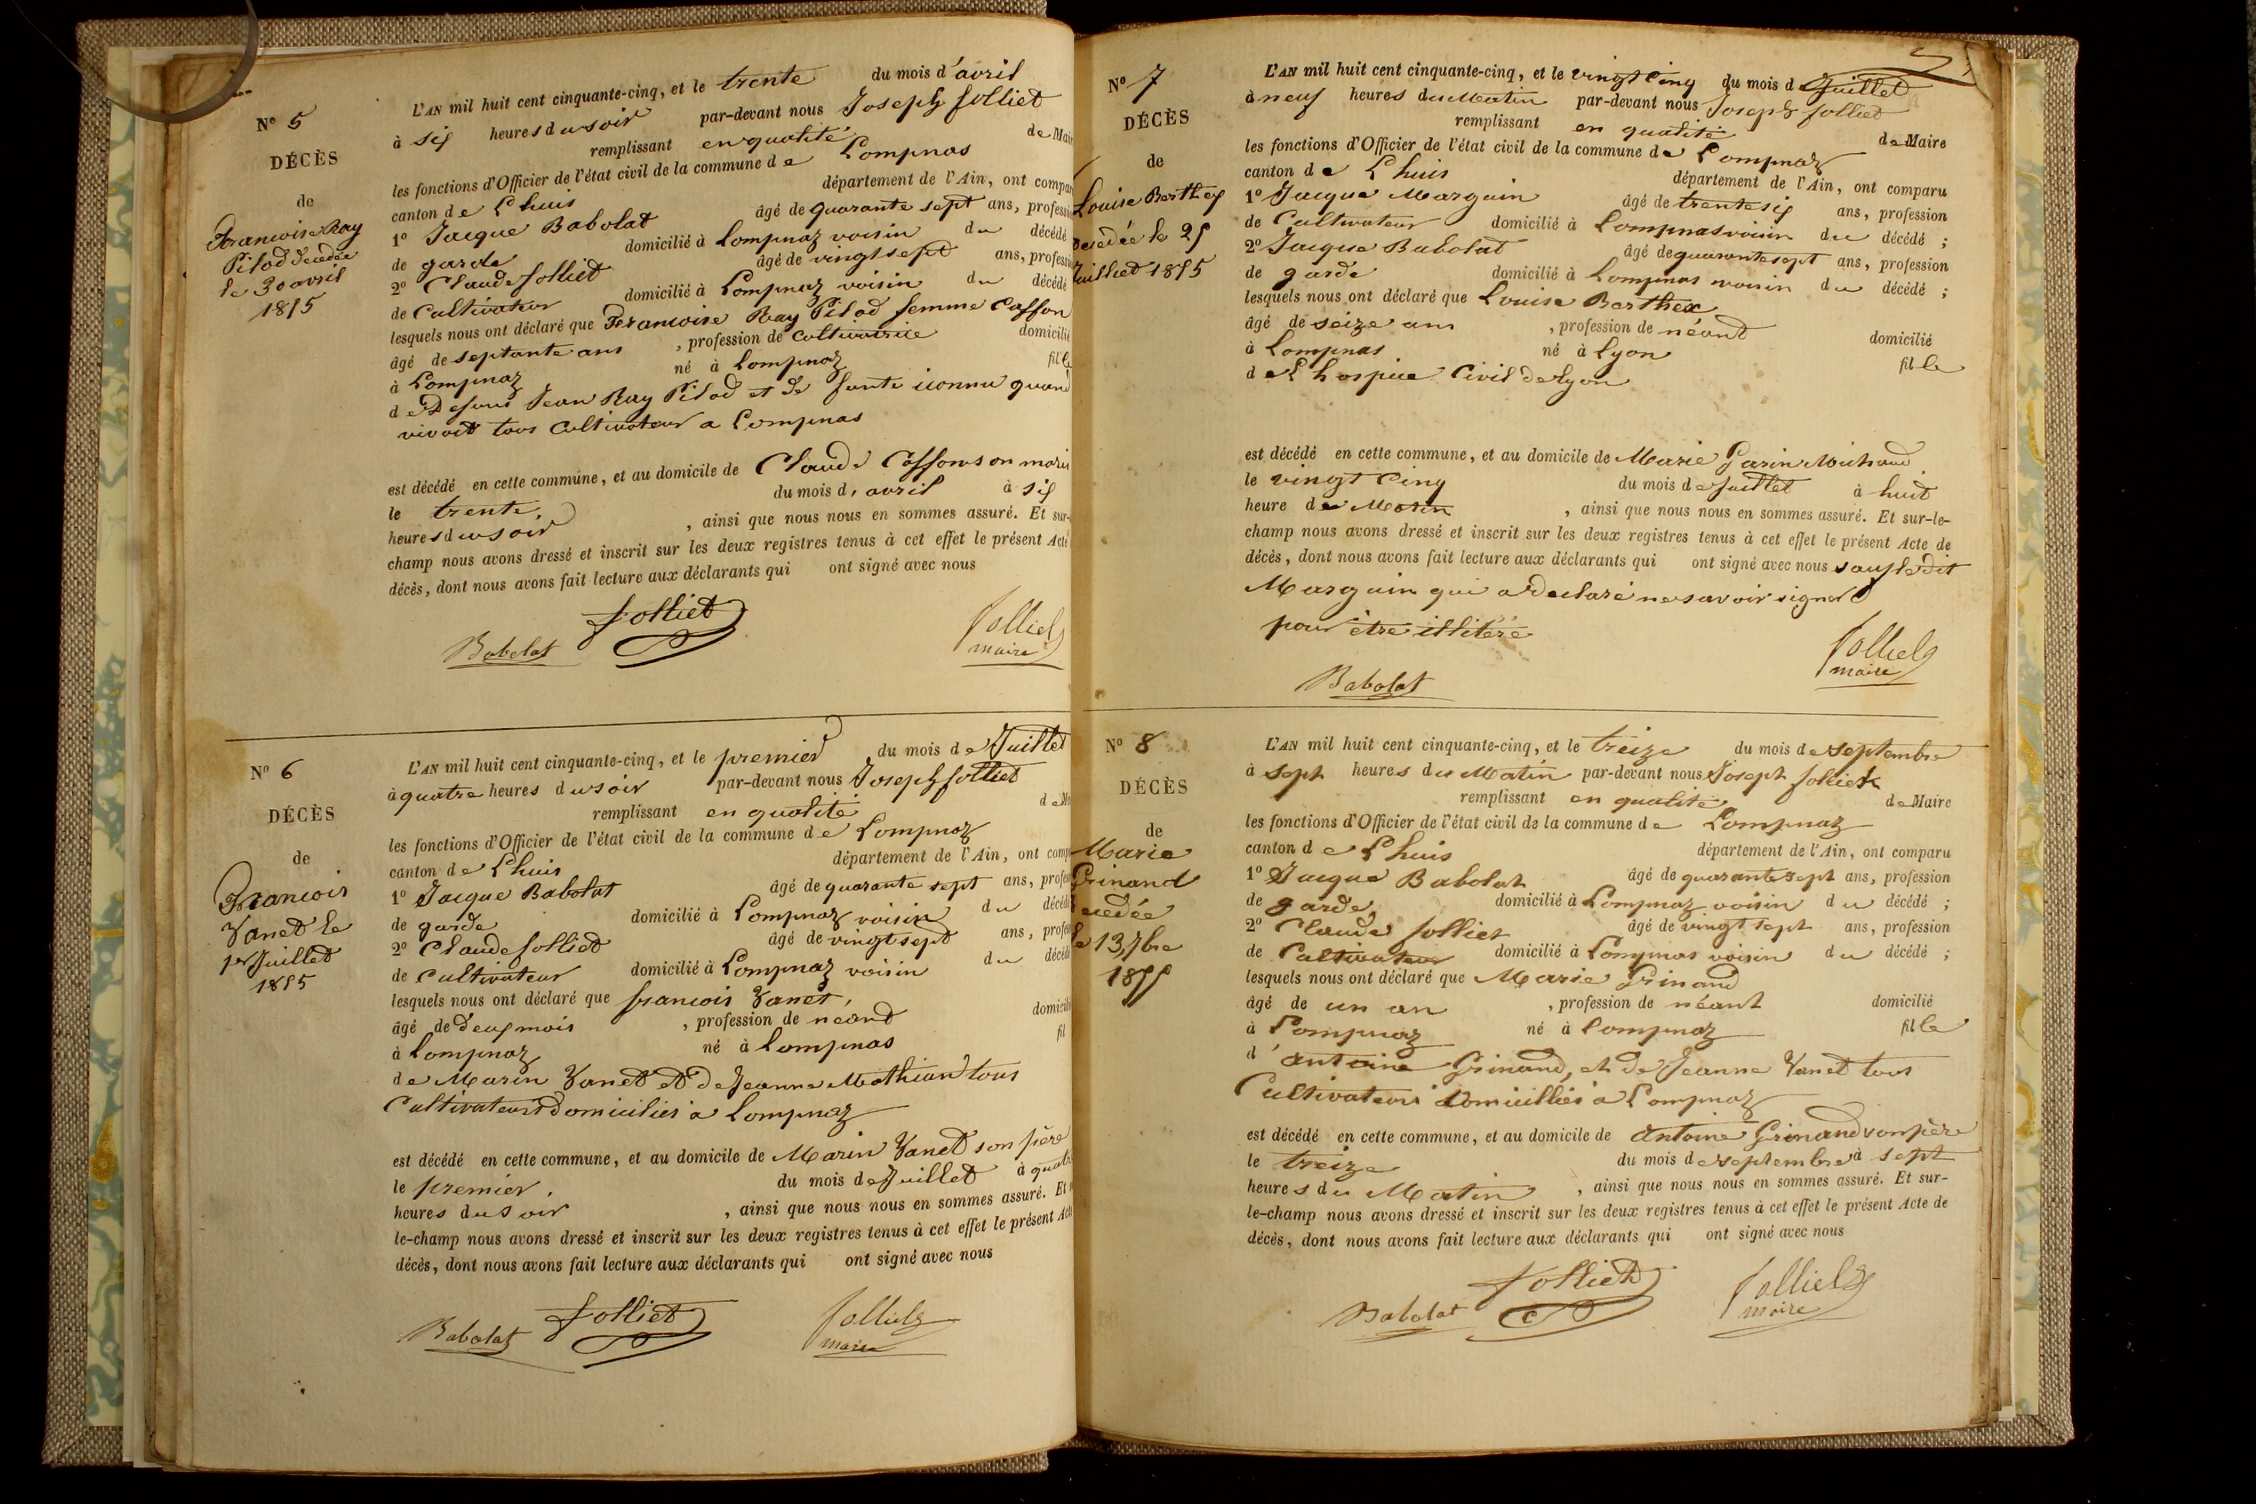 N° 5
DÉCÈS
de
Francoise Ray
Pilod decedée
le 30 avril
1855
L'AN mil huit cent cinquante-cinq, et le trente du mois d'avril
à six heures du soir par-devant nous Joseph Jolliet
remplissant en qualité de Mair
les fonctions d'Officier de l'état civil de la commune de Lompnas
canton de Lhuis département de l'Ain, ont compar
1° Jacque Babolat âgé de quarante sept ans, professi
de garde domicilié à Lompnaz voisin du décédé
2° Claude Jolliet âgé de vingt sept ans, professi
de Cultivateur domicilié à Lompnaz voisin du décédé
lesquels nous ont déclaré que Francoise Ray Pilod femme Caffon
âgé de septante ans , profession de cultivatrice domicilié
à Lompnaz né à Lompnaz fille
de Defunt Jean Ray Pilod et de funte iconnu quand
vivoit tous Cultivateur a Lompnas
est décédé en cette commune, et au domicile de Claude Caffon son marie
le trente du mois d'avril à six
heures du soir , ainsi que nous nous en sommes assuré. Et sur-
champ nous avons dressé et inscrit sur les deux registres tenus à cet effet le présent Acte
décès, dont nous avons fait lecture aux déclarants qui ont signé avec nous
Babolat Jolliet Jolliet
maire
N° 6
DÉCÈS
de
Francois
Vanet le
1er Juillet
1855
L'AN mil huit cent cinquante-cinq, et le premier du mois de Juillet
à quatre heures du soir par-devant nous Joseph Jolliet
remplissant en qualité de M
les fonctions d'Officier de l'état civil de la commune de Lompnaz
canton de Lhuis département de l'Ain, ont comp
1° Jacque Babolat âgé de quarante sept ans, profes
de garde domicilié à Lompnaz voisin du décédé
2° Claude Jolliet âgé de vingt sept ans, profes
de Cultivateur domicilié à Lompnaz voisin du décédé
lesquels nous ont déclaré que francois Vanet,
âgé de deux mois , profession de néand domicili
à Lompnaz né à Lompnas fil
de Marin Vanet et de Jeanne Mathian tous
Cultivateurs domiciliés a Lompnaz
est décédé en cette commune, et au domicile de Marin Vanet son père
le premier. du mois de Juillet à quatr
heures du soir , ainsi que nous nous en sommes assuré. Et s
le-champ nous avons dressé et inscrit sur les deux registres tenus à cet effet le présent Acte
décès, dont nous avons fait lecture aux déclarants qui ont signé avec nous
Babolat Jolliet Jolliet
maire
N° 7
DÉCÈS
de
Louise Berthex
decedée le 25
Juilliet 1855
L'AN mil huit cent cinquante-cinq, et le vingt Cinq du mois de Juillet
à neuf heures du Matin par-devant nous Joseph Jolliet
remplissant en qualité de Maire
les fonctions d'Officier de l'état civil de la commune de Lompnaz
canton de Lhuis département de l'Ain, ont comparu
1° Jacque Marguin âgé de trente six ans, profession
de Cultivateur domicilié à Lompnas voisin du décédé ;
2° Jacque Babolat âgé de quarante sept ans, profession
de garde domicilié à Lompnas voisin du décédé ;
lesquels nous ont déclaré que Louise Berthex
âgé de seize ans , profession de néand domicilié
à Lompnas né à Lyon fille
de L'hospice Civil de lyon
est décédé en cette commune, et au domicile de Marie Garin Michaud
le vingt Cinq du mois de Juillet à huit
heure de Matin , ainsi que nous nous en sommes assuré. Et sur-le-
champ nous avons dressé et inscrit sur les deux registres tenus à cet effet le présent Acte de
décès, dont nous avons fait lecture aux déclarants qui ont signé avec nous sauf ledit
Marguin qui a declaré ne savoir signer
pour être illitéré
Babolat Jolliet
maire
N° 8
DÉCÈS
de
Marie
Grinand
decedée
le 13 7bre
1855
L'AN mil huit cent cinquante-cinq, et le treize du mois de septembre
à sept heures du Matin par-devant nous Joseph Jolliet
remplissant en qualité de Maire
les fonctions d'Officier de l'état civil de la commune de Lompnaz
canton de Lhuis département de l'Ain, ont comparu
1° Jacque Babolat âgé de quarante sept ans, profession
de garde, domicilié à Lompnaz voisin du décédé ;
2° Claude Jolliet âgé de vingt sept ans, profession
de Cultivateur domicilié à Lompnas voisin du décédé ;
lesquels nous ont déclaré que Marie Grinand
âgé de un an , profession de néant domicilié
à Lompnaz né à Lompnaz fille
d'antoine Grinand, et de Jeanne Vanet tous
Cultivateurs domicilliés a Lompnaz
est décédé en cette commune, et au domicile de antoine Grinand son père
le treize du mois de septembre à sept
heures du Matin , ainsi que nous nous en sommes assuré. Et sur-
le-champ nous avons dressé et inscrit sur les deux registres tenus à cet effet le présent Acte de
décès, dont nous avons fait lecture aux déclarants qui ont signé avec nous
Babolat Jolliet Jolliet
maire